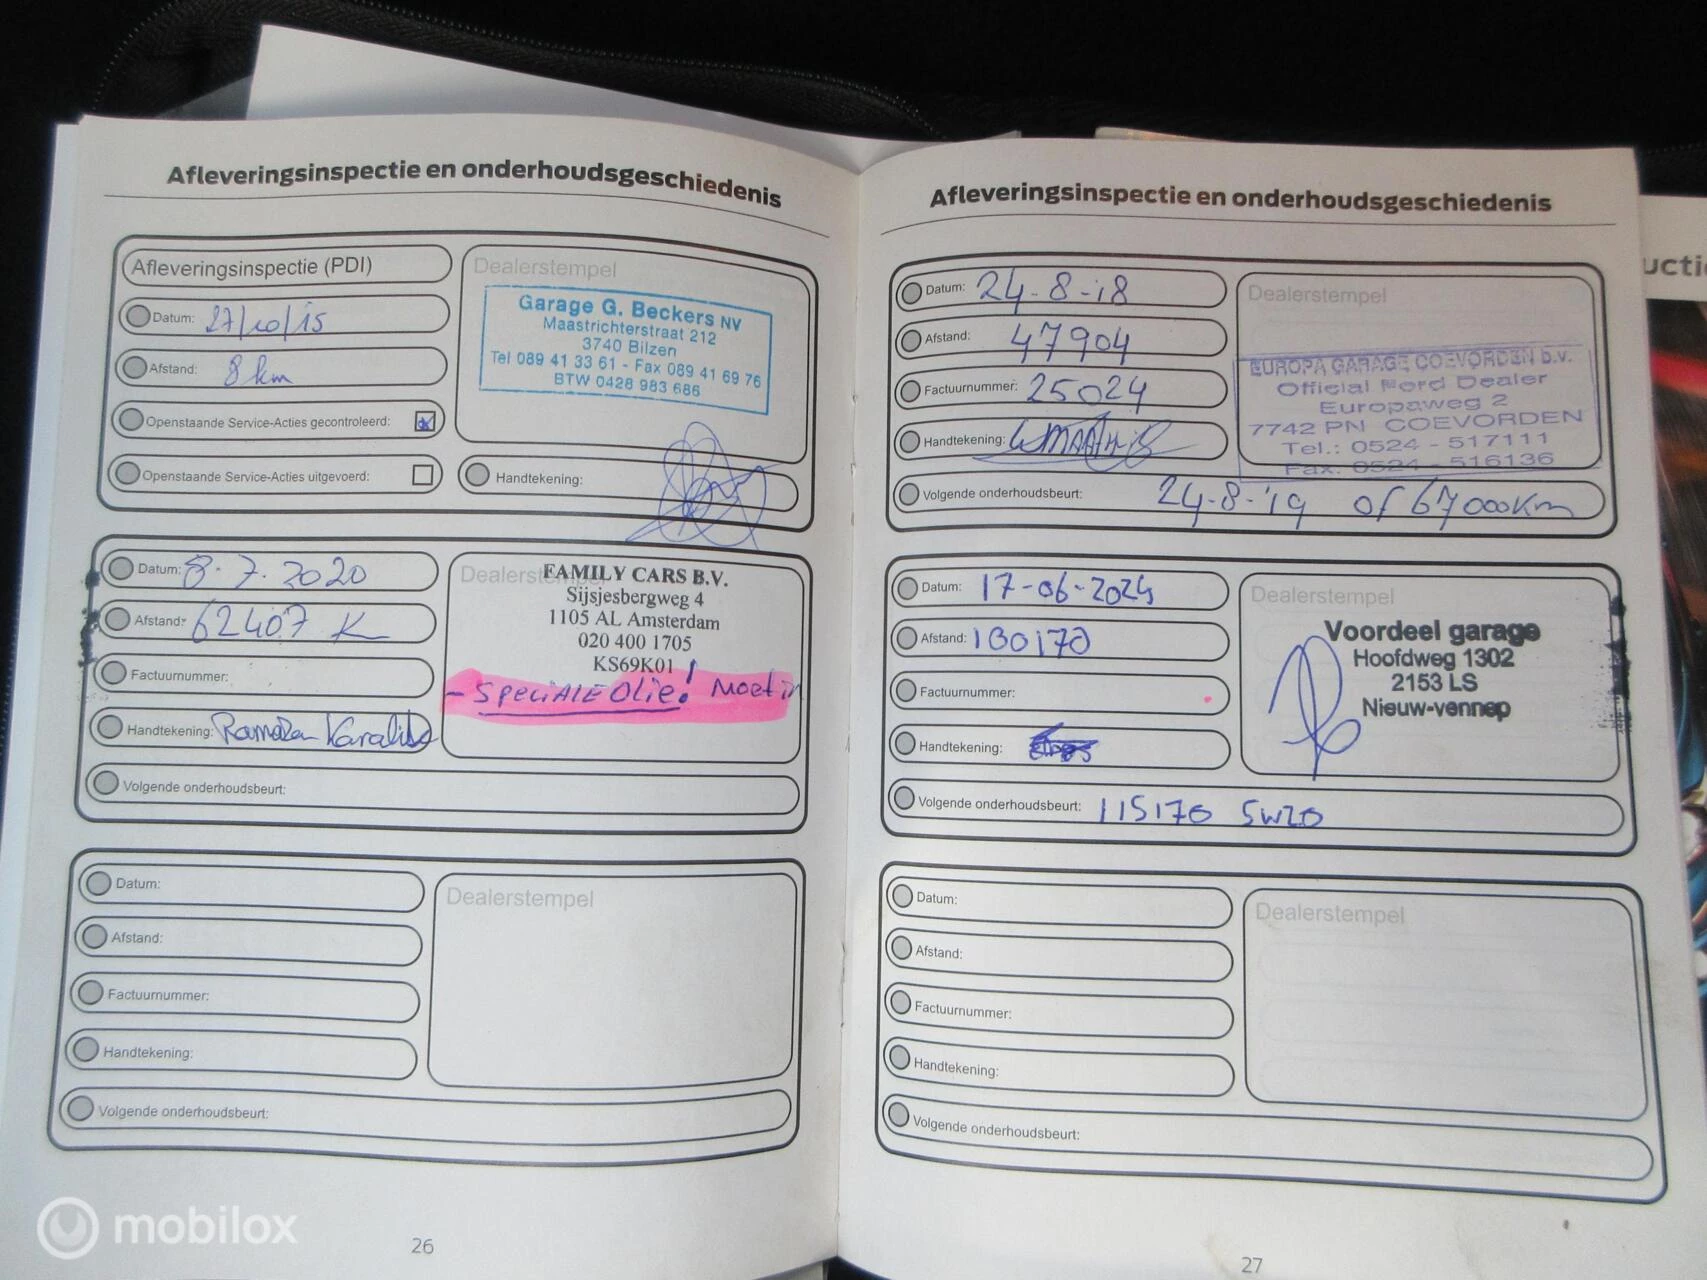 Afleveringsinspectie en onderhoudsgeschiedenis
Afleveringsinspectie (PDI)
Datum: 27/10/15
Afstand: 8 km
Openstaande Service-Acties gecontroleerd:
Openstaande Service-Acties uitgevoerd:
Dealerstempel
Garage G. Beckers NV
Maastrichterstraat 212
3740 Bilzen
Tel 089 41 33 61 - Fax 089 41 69 76
BTW 0428 983 686
Handtekening:
Datum: 8.7.2020
Afstand: 62407 K
Factuurnummer:
Handtekening:
Volgende onderhoudsbeurt:
Dealerstempel
FAMILY CARS B.V.
Sijsjesbergweg 4
1105 AL Amsterdam
020 400 1705
KS69K01
- SPECIALE OLIE! Moet in
Datum:
Afstand:
Factuurnummer:
Handtekening:
Volgende onderhoudsbeurt:
Dealerstempel
26
Afleveringsinspectie en onderhoudsgeschiedenis
Datum: 24-8-18
Afstand: 47904
Factuurnummer: 25024
Handtekening:
Volgende onderhoudsbeurt: 24-8-'19 of 67000Km
Dealerstempel
EUROPA GARAGE COEVORDEN b.v.
Official Ford Dealer
Europaweg 2
7742 PN COEVORDEN
Tel.: 0524 - 517111
Fax. 0524 - 516136
Datum: 17-06-2024
Afstand: 100170
Factuurnummer:
Handtekening:
Volgende onderhoudsbeurt: 115170 5W20
Dealerstempel
Voordeel garage
Hoofdweg 1302
2153 LS
Nieuw-vennep
Datum:
Afstand:
Factuurnummer:
Handtekening:
Volgende onderhoudsbeurt:
Dealerstempel
27
mobilox